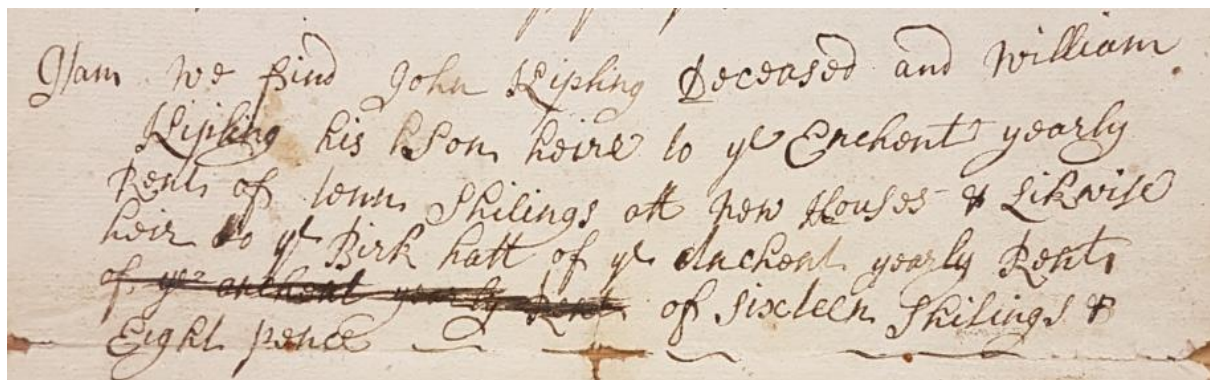 Itam we find John Kipling Deceased and William
Kipling his Son heire to ye Enchent yearly
Rent of tenn Shilings att new Houses & Likwise
heir to ye Birk hatt of ye Anchent yearly Rent
of ye anchent yearly Rent of sixteen Shilings &
Eight pence